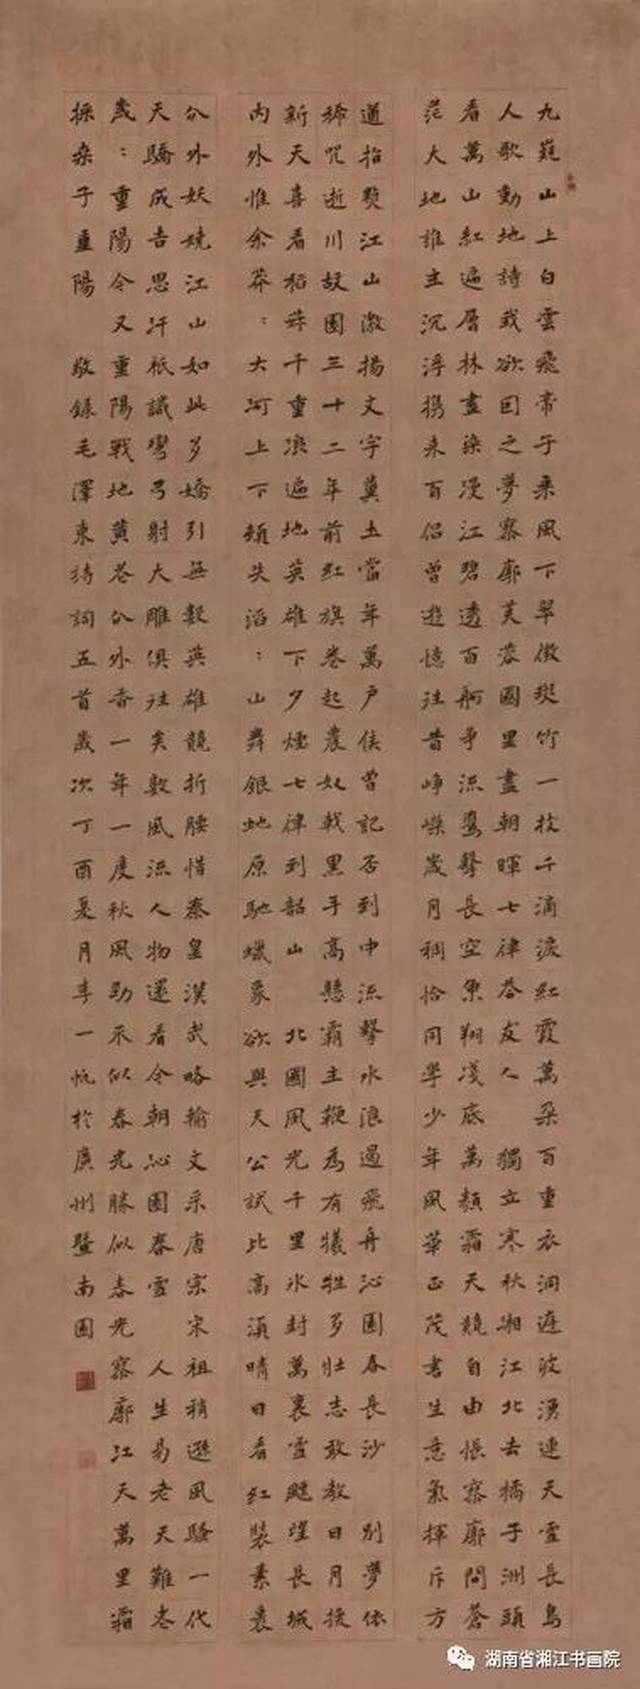 九嶷山上白雲飛帝子乘風下翠微斑竹一枝千滴淚紅霞萬朵百重衣洞庭波湧連天雪長島
人歌動地詩我欲因之夢寥廓芙蓉國里盡朝暉七律答友人 獨立寒秋湘江北去橘子洲頭
看萬山紅遍層林盡染漫江碧透百舸爭流鷹擊長空魚翔淺底萬類霜天競自由悵寥廓問蒼
茫大地誰主沉浮携來百侶曾遊憶往昔崢嶸歲月稠恰同學少年風華正茂書生意氣揮斥方
遒指點江山激揚文字糞土當年萬戶侯曾記否到中流擊水浪遏飛舟沁園春長沙 別夢依
稀咒逝川故園三十二年前紅旗卷起農奴戟黑手高懸霸主鞭為有犧牲多壯志敢教日月換
新天喜看稻菽千重浪遍地英雄下夕煙七律到韶山 北國風光千里冰封萬裏雪飄望長城
内外惟余莽:大河上下頓失滔:山舞銀地原馳蠟象欲與天公試比高須晴日看紅裝素裹
分外妖嬈江山如此多嬌引無數英雄競折腰惜秦皇漢武略輸文采唐宗宋祖稍遜風騷一代
天驕成吉思汗衹識彎弓射大雕俱往矣數風流人物還看今朝沁園春雪 人生易老天難老
歲:重陽今又重陽戰地黃花分外香一年一度秋風勁不似春光勝似春光寥廓江天萬里霜
採桑子重陽 敬錄毛澤東詩詞五首歲次丁酉夏月李一帆於廣州暨南園
湖南省湘江书画院